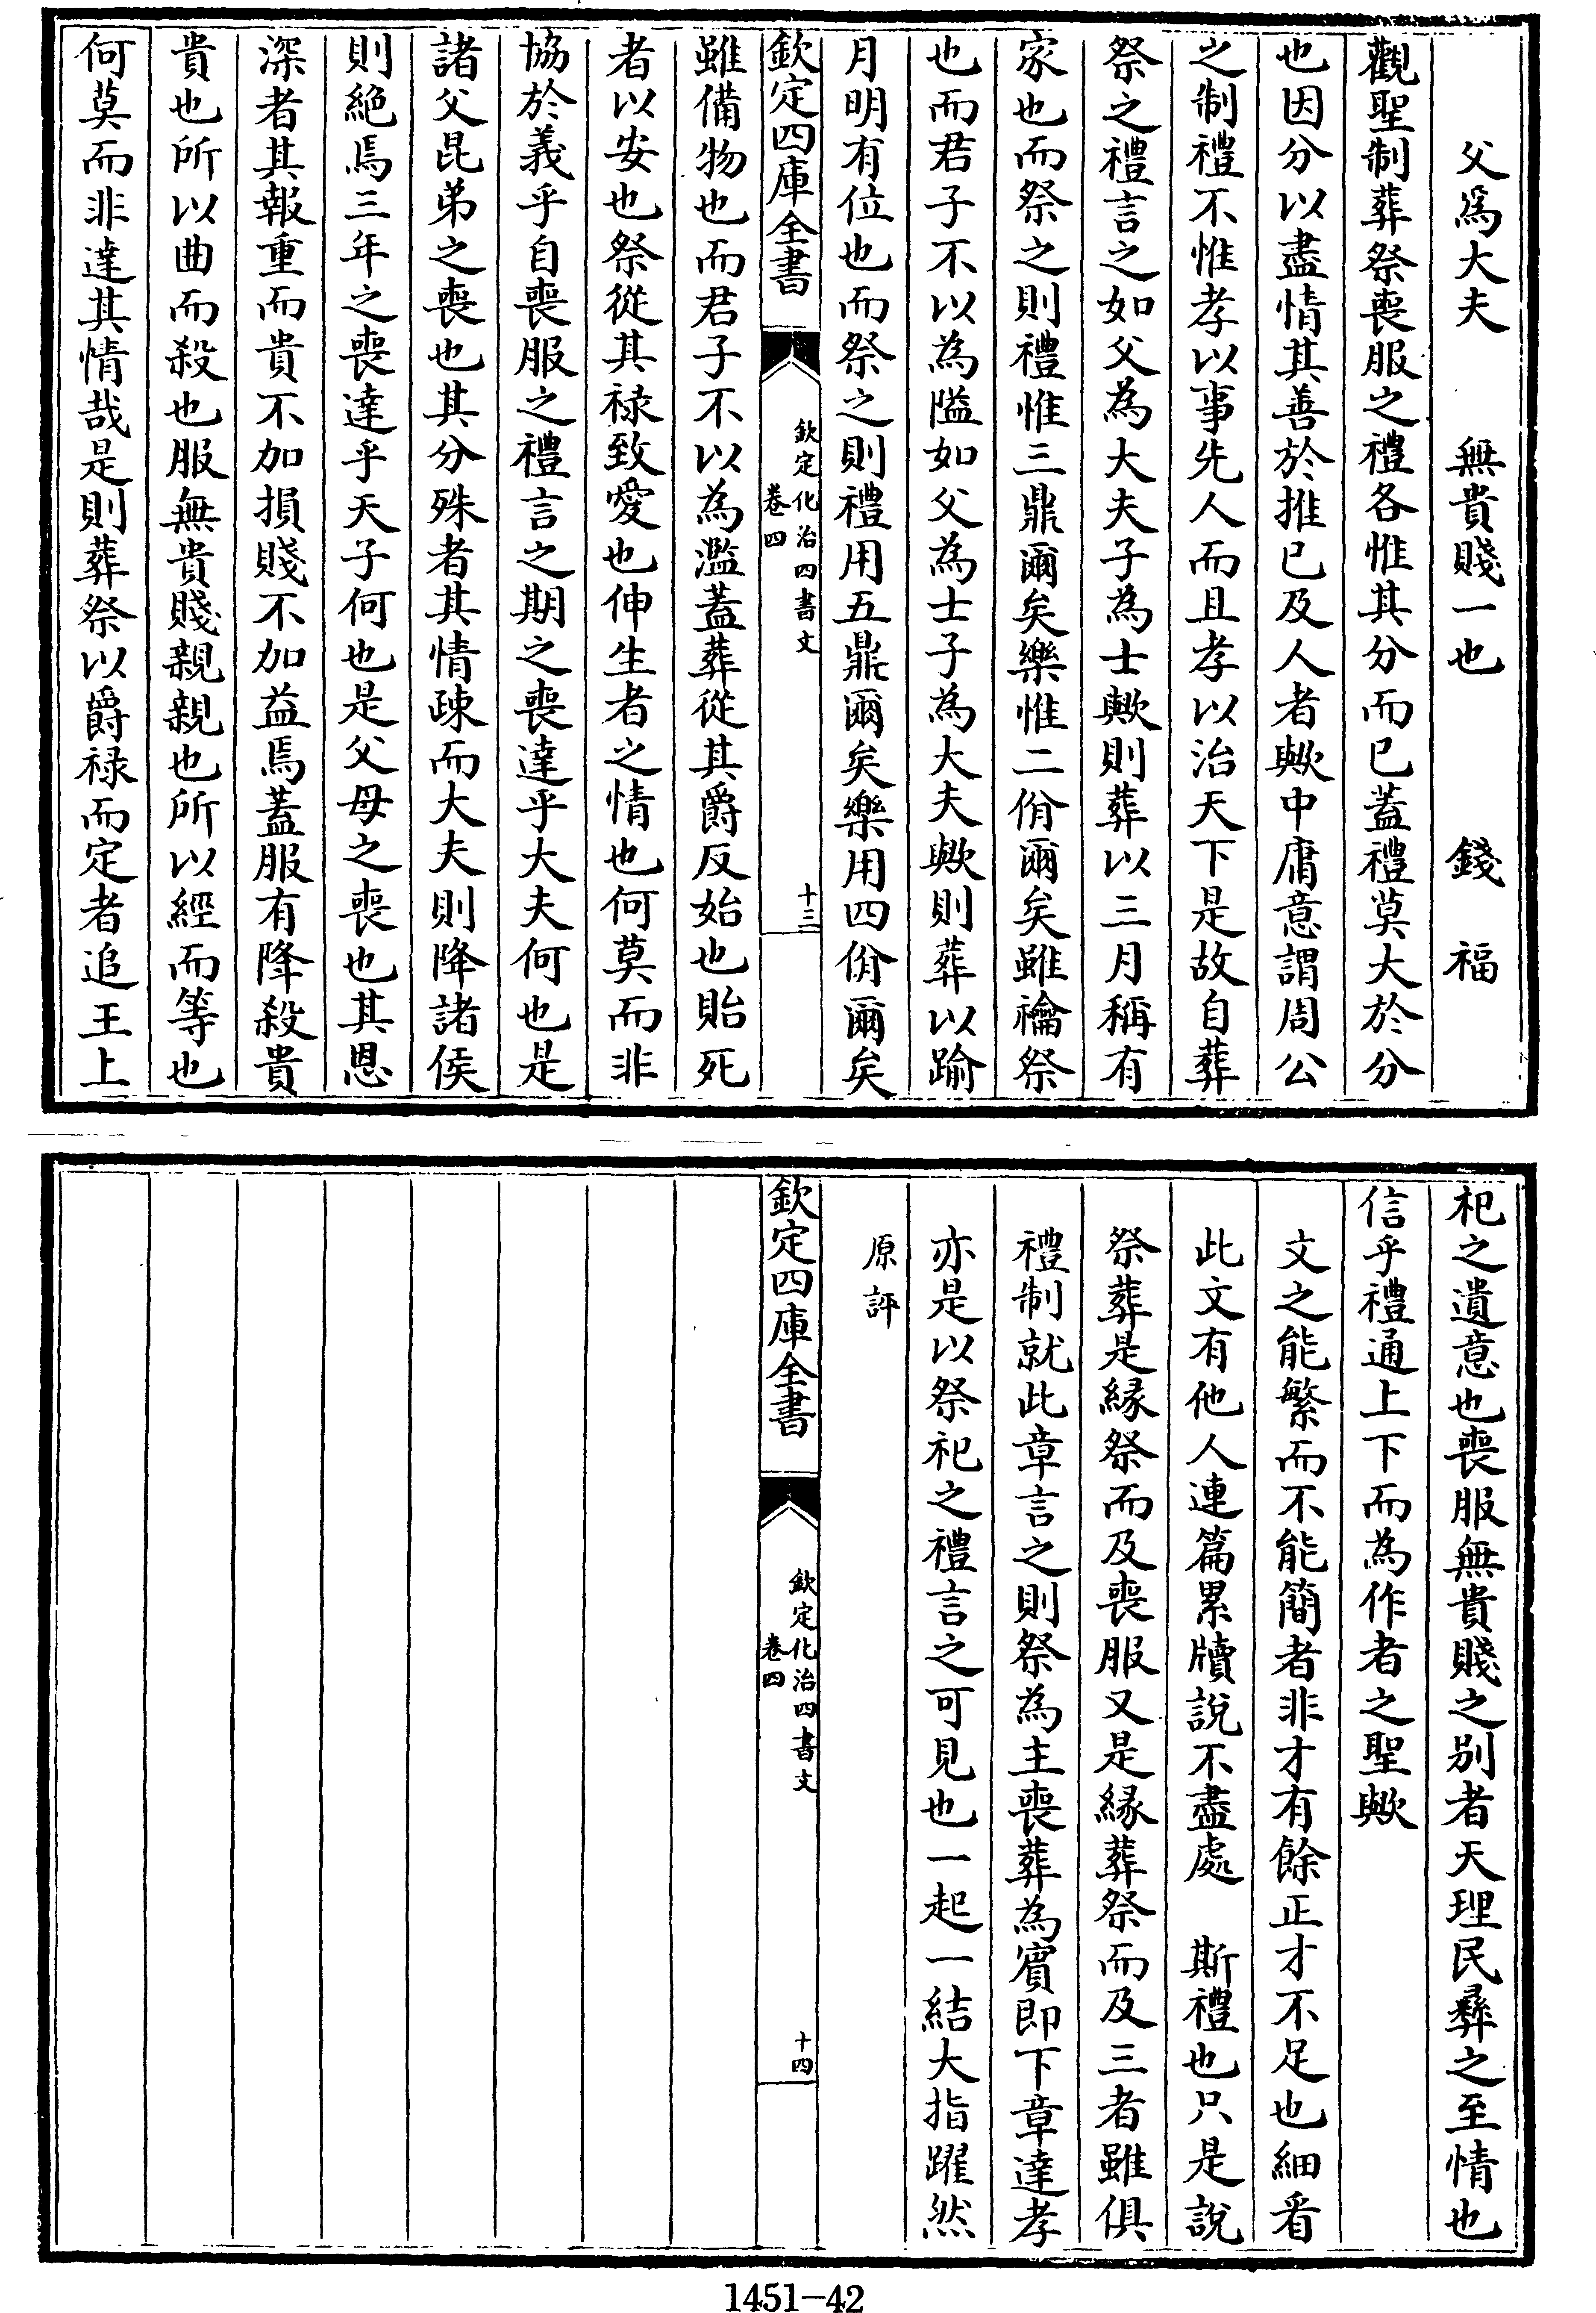 父爲大夫　無貴賤一也　錢福
觀聖制葬祭喪服之禮各惟其分而已蓋禮莫大於分
也因分以盡情其善於推已及人者歟中庸意謂周公
之制禮不惟孝以事先人而且孝以治天下是故自葬
祭之禮言之如父為大夫子為士歟則葬以三月稱有
家也而祭之則禮惟三鼎爾矣樂惟二佾爾矣雖禴祭
也而君子不以為隘如父為士子為大夫歟則葬以踰
月明有位也而祭之則禮用五鼎爾矣樂用四佾爾矣
欽定四庫全書
欽定化治四書文
卷四
十三
雖備物也而君子不以為濫蓋葬從其爵反始也貽死
者以安也祭從其祿致愛也伸生者之情也何莫而非
協於義乎自喪服之禮言之期之喪達乎大夫何也是
諸父昆弟之喪也其分殊者其情疎而大夫則降諸侯
則絶焉三年之喪達乎天子何也是父母之喪也其恩
深者其報重而貴不加損賤不加益焉蓋服有降殺貴
貴也所以曲而殺也服無貴賤親親也所以經而等也
何莫而非達其情哉是則葬祭以爵祿而定者追王上
祀之遺意也喪服無貴賤之别者天理民彞之至情也
信乎禮通上下而為作者之聖歟
文之能繁而不能簡者非才有餘正才不足也細看
此文有他人連篇累牘說不盡處　斯禮也只是說
祭葬是緣祭而及喪服又是緣葬祭而及三者雖俱
禮制就此章言之則祭為主喪葬為賓即下章達孝
亦是以祭祀之禮言之可見也一起一結大指躍然
原評
欽定四庫全書
欽定化治四書文
卷四
十四
1451-42